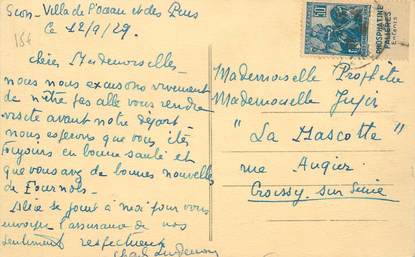 Villa de l'océan et des Pins
Ce 12/9/29.
chères Mesdemoiselles
nous nous excusons vivement
de n'être pas allé vous rendre
visite avant notre départ
nous espérons que vous êtes
toujours en bonne santé et
que vous avez de bonnes nouvelles
de Fournols.
Alice se joint à moi pour vous
envoyer l'assurance de nos
sentiments respectueux
Mademoiselle Prophète
Mademoiselle
"La Mascotte"
rue Augier
Croissy sur Seine
PHOSPHATINE
FALIÈRES
Enfants